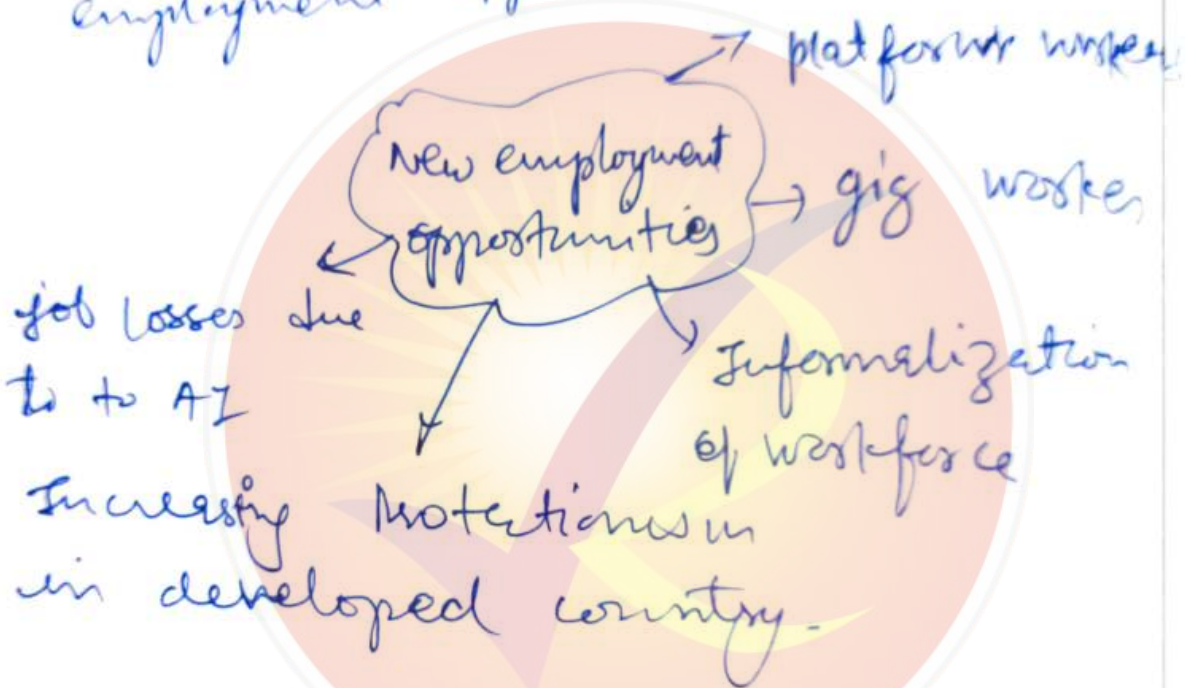 employment
platform worker
New employment
opportunities
gig worker
job losses due
to to AI
Informalization
of workforce
Increasing Protectionism
in developed country.